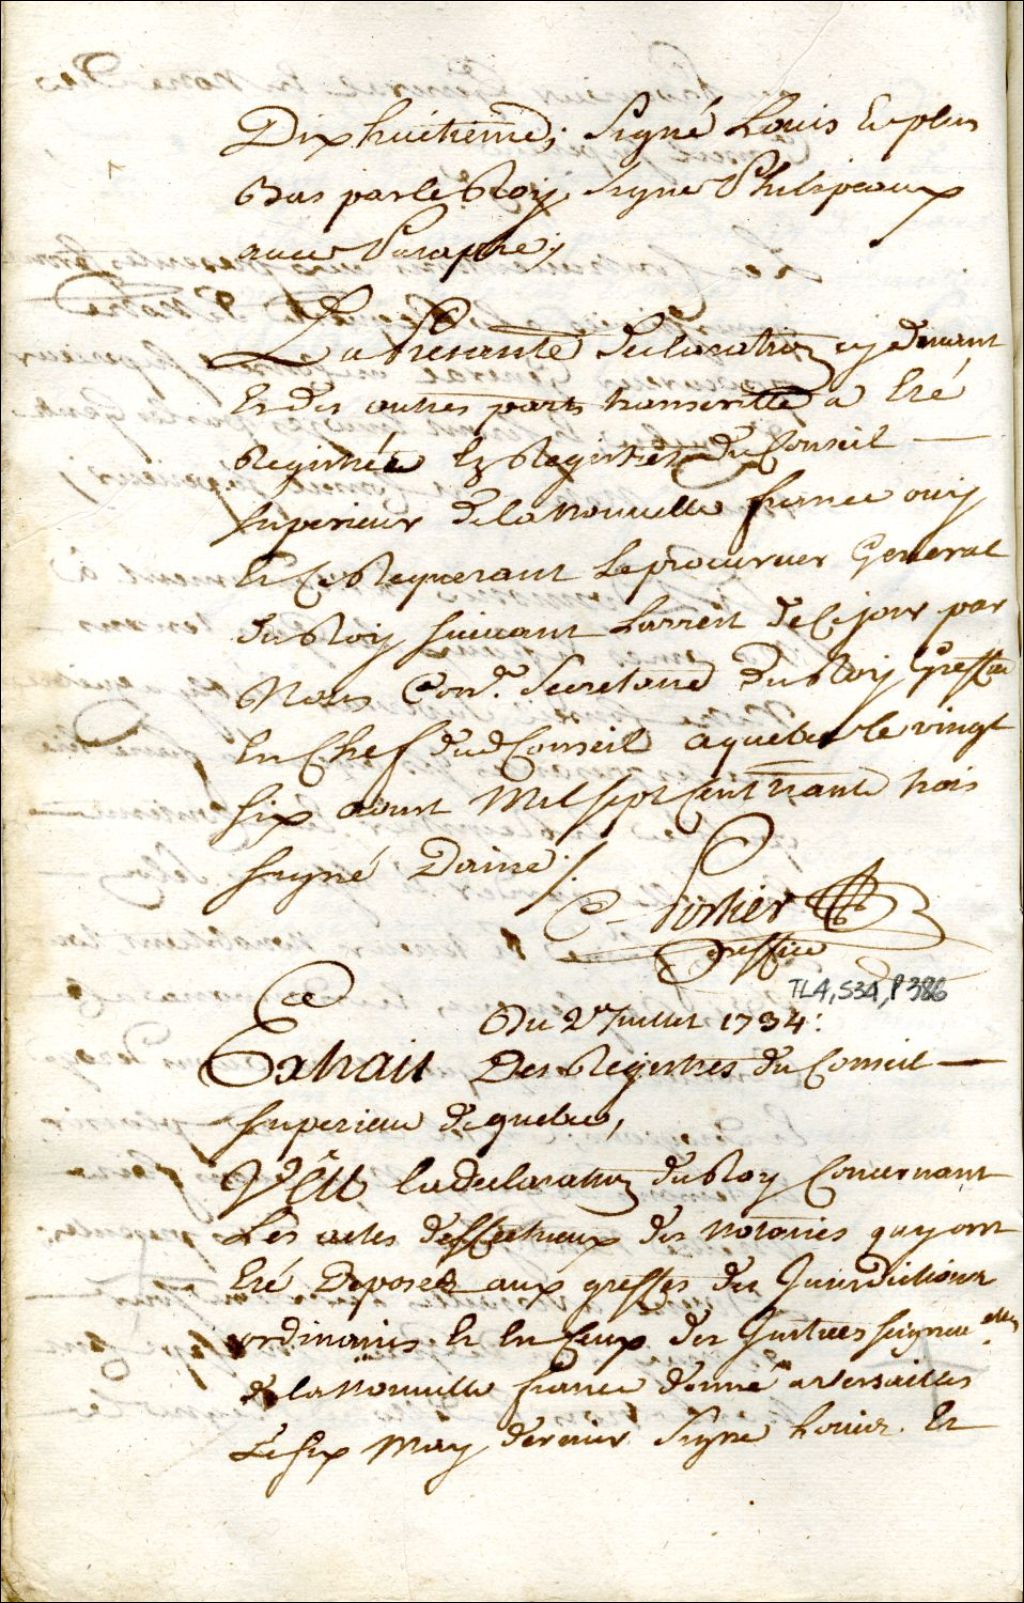 Dixhuitieme; Signé Louis Et plus
Bas par le Roy, signé Philipeaux
avec Paraphe;
La Presente Declaration cy devant
Et des autres parts transcritte a Eté
Registrée Es Registres du Conseil
Superieur de la Nouvelle france ouy
Et Ce Requerant Le procureur General
du Roy suivant L'arrêt de Ce jour par
Nous Con.er Secretaire du Roy Greffier
En Chef dud Conseil a quebec le vingt
six aoust Mil sept Cent trante trois
signé Daine ./.
C Porlier
Greffier
TL4, S34, P386
Du 2e Juillet 1734:
Extrait Des Registres du Conseil
Superieur de quebec,
Vû la declaration du Roy Concernant
Les actes deffectueux des Notaires quy ont
Eté Deposez aux greffes des Jurisdictions
ordinaires Et En Ceux des Justices seigneu.elles
de la Nouvelle france donné a Versailles
Le six May dernier Signé Louis. Et